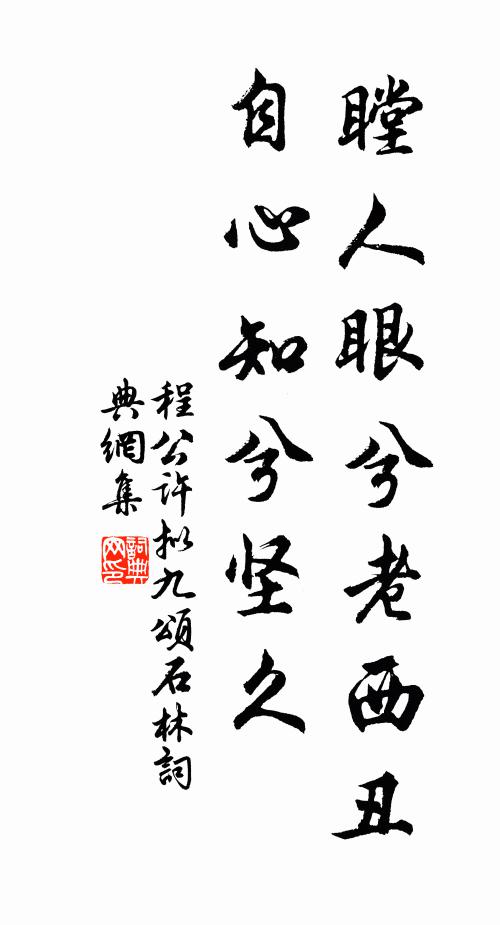 瞠人眼兮老西丑
自心知兮坚久
程公许拟九頌石林詞
典網集
詞典
网印